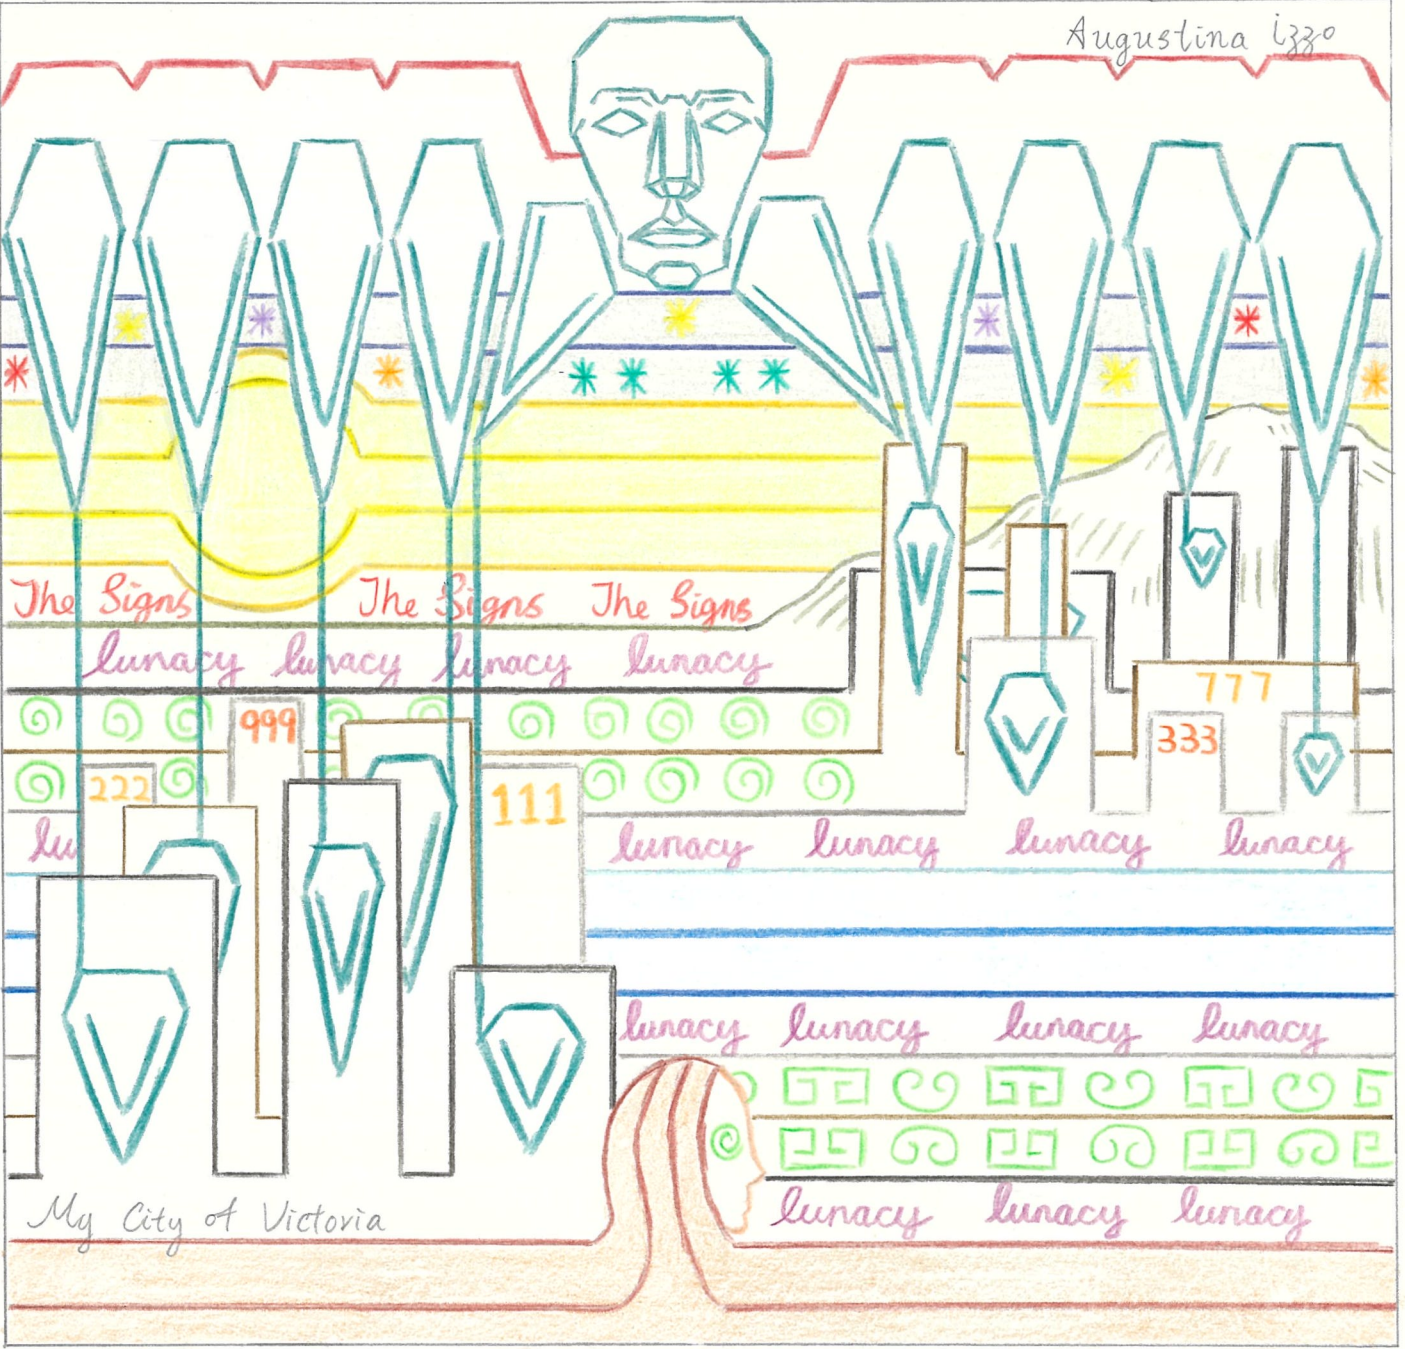 Augustina Izzo
The Signs The Signs The Signs
lunacy lunacy lunacy lunacy
777
999
333
222
111
lu lunacy lunacy lunacy lunacy
lunacy lunacy lunacy lunacy
lunacy lunacy lunacy
My City of Victoria